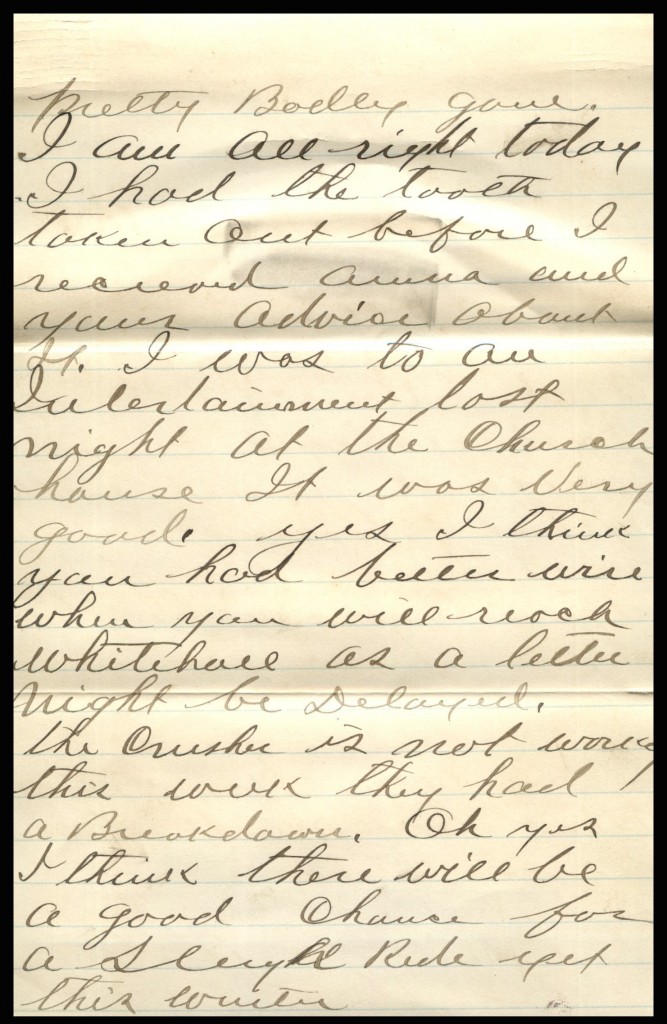 Pretty Bodley gone.
I am all right today
I had the tooth
taken out before I
recieved Anna and
your advice about
It. I was to an
Intertainment last
night at the Church
house It was Very
good. yes I think
you had better wire
when you will reach
Whitehall as a letter
Might be Delayed.
the Crusher is not work
this week they had
a Breakdown. Oh yes
I think there will be
a good Chance for
a Sleigh Ride yet
this winter